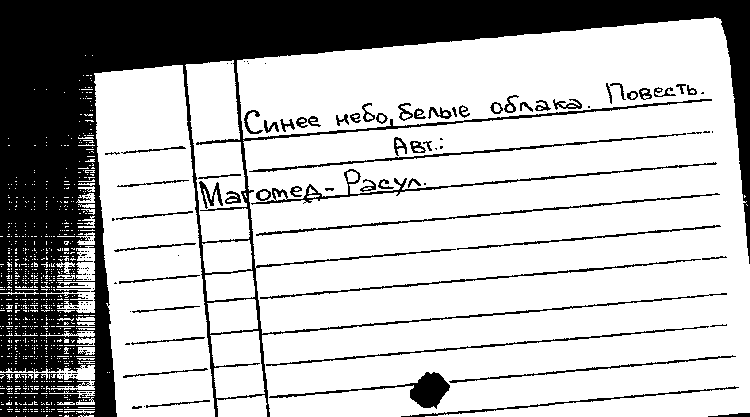 Синее небо, белые облака. Повесть.
Авт.:
Магомед-Расул.